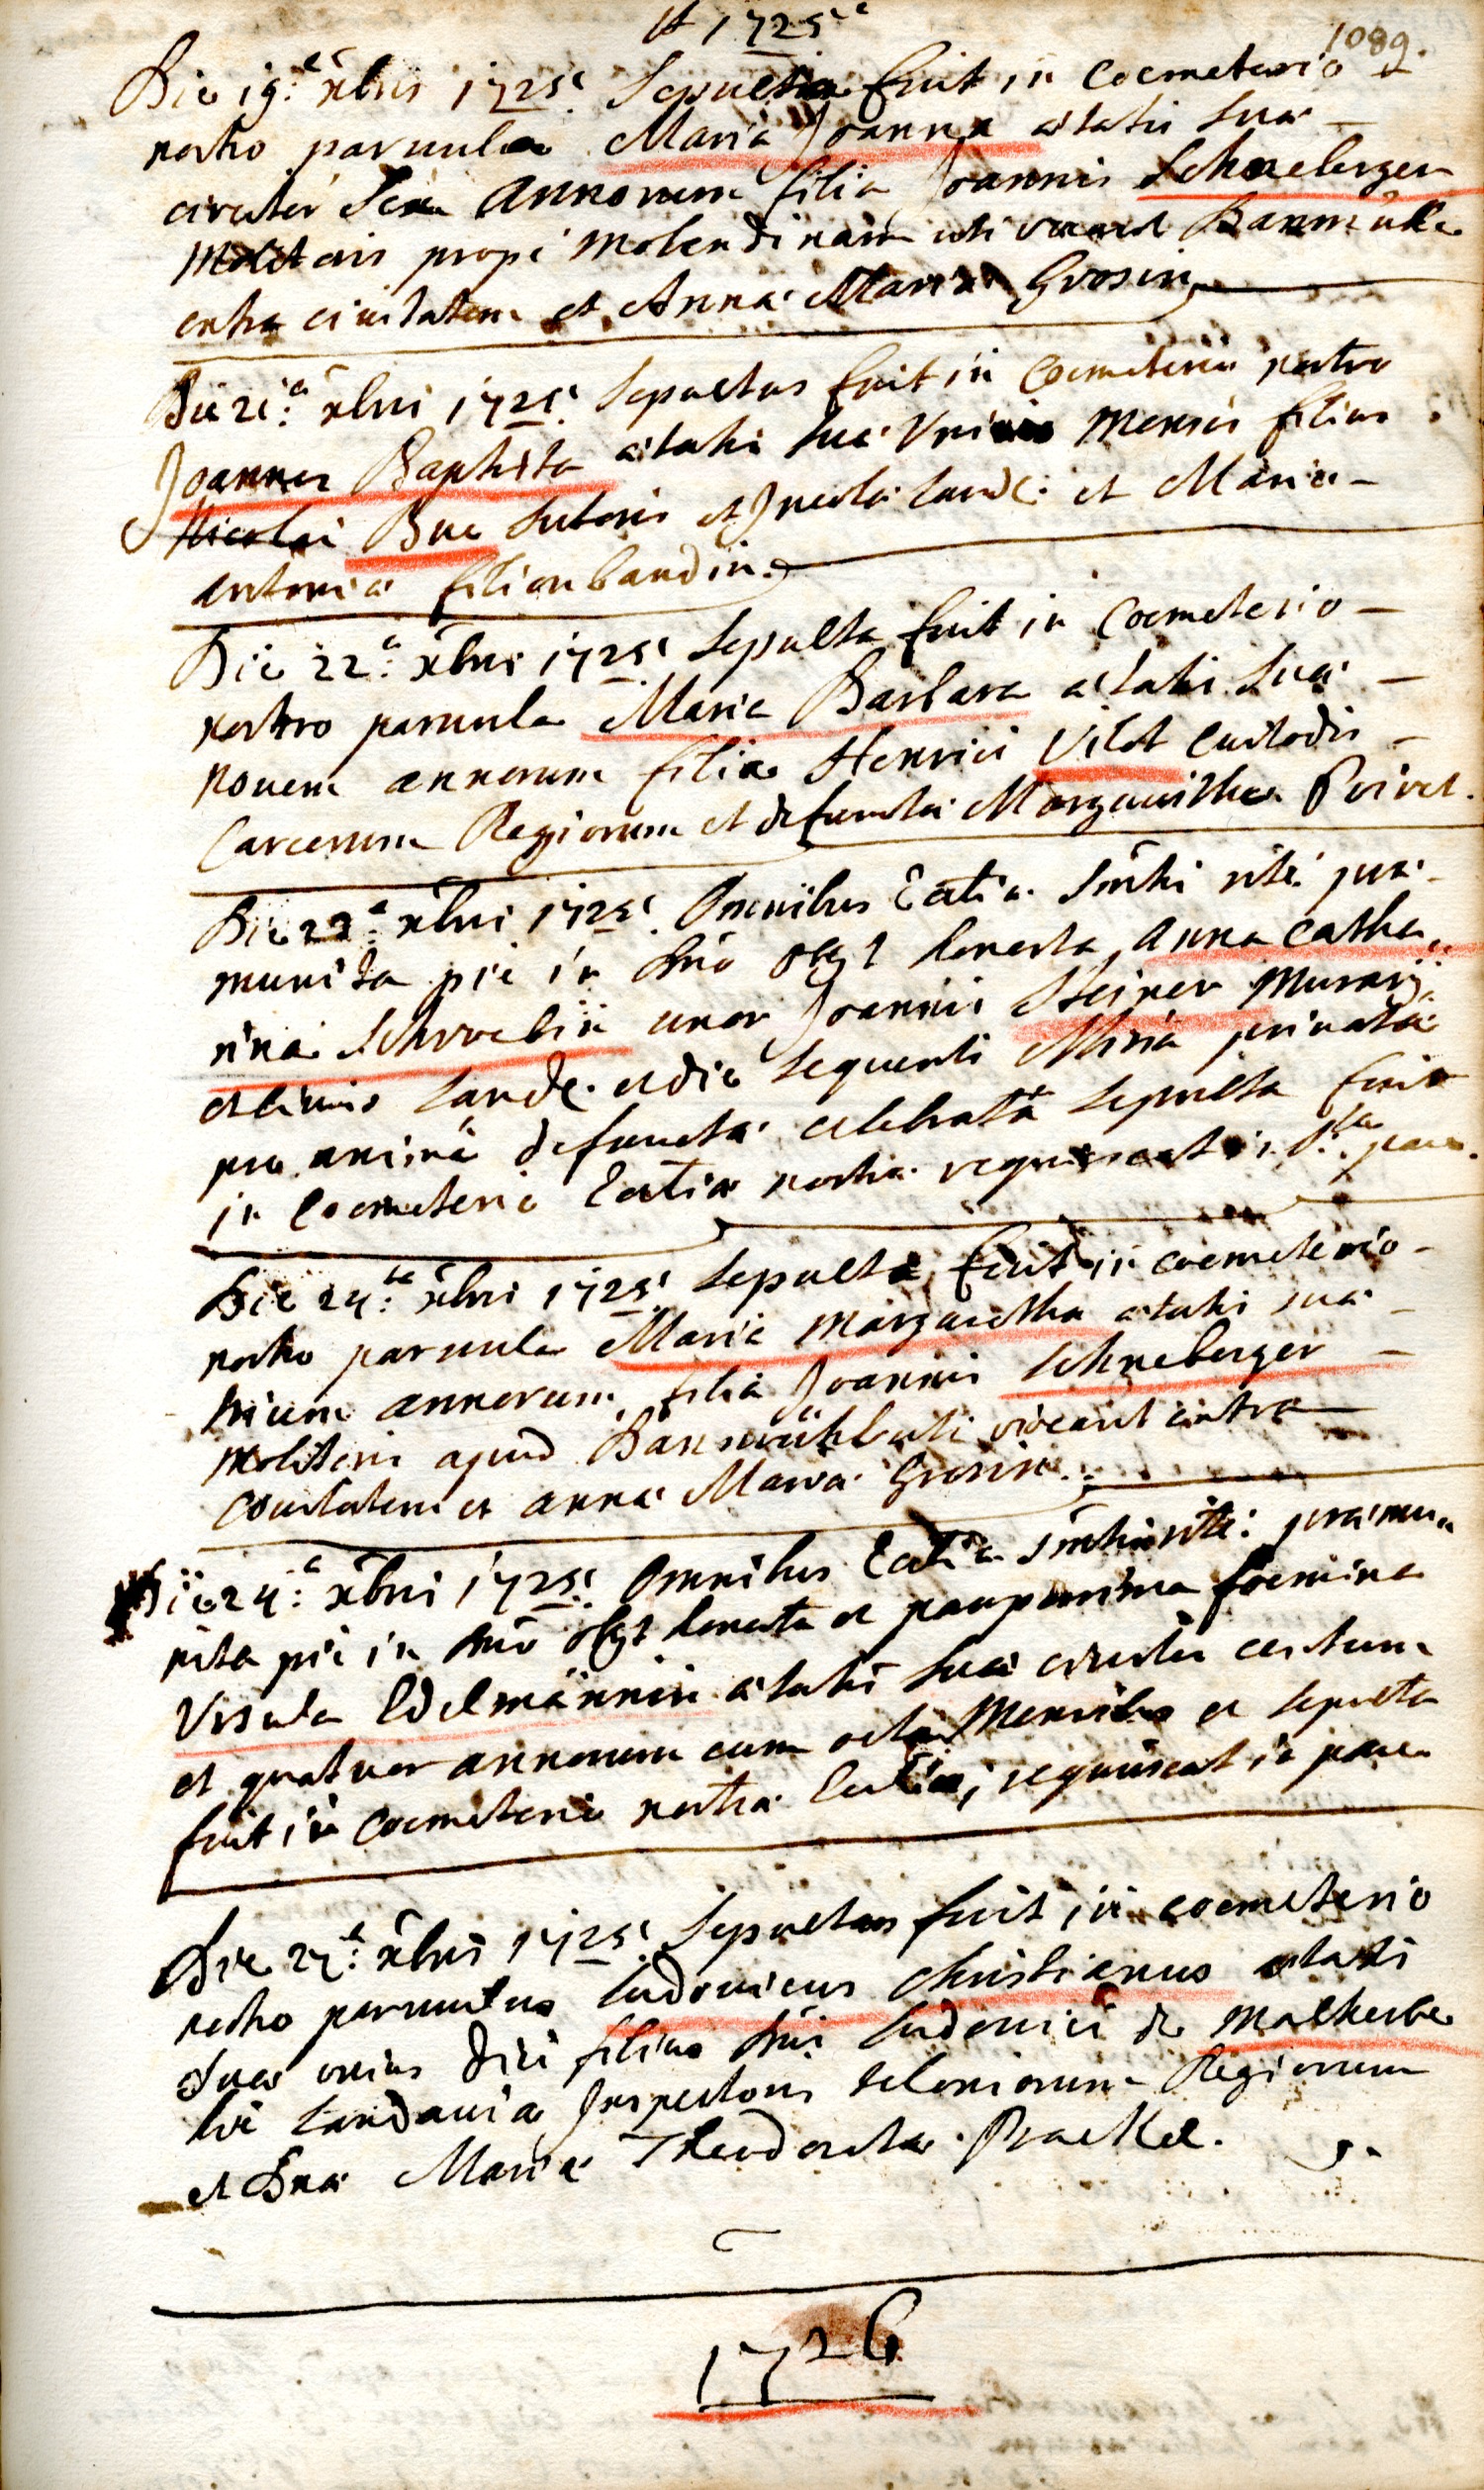 1725
1089.
Die 19.a xbris 1725. Sepulta fuit in Coemeterio
nostro parvula Maria Joanna ætatis suæ
circiter Sex annorum filia Joannis Schneeberger
Molitoris propè molendinam uti vocant Banmühle
extra civitatem et Annæ Mariæ Grosin
Die 21.a xbris 1725. Sepultus fuit in Coemeterio nostro
Joannes Baptista ætatis suæ Unius Mensis filius
Nicolai Bue Sutoris et Incolæ Land: et Mariæ
Antoniæ filionbaudin.
Die 22.a xbris 1725. Sepulta fuit in Coemeterio
nostro parvula Maria Barbara ætatis suæ
novem annorum filia Henrici Vilet Custodis
Carcerum Regiorum et defunctæ Margarithæ Poirel.
Die 23.a xbris 1725. Omnibus Ecctiæ Smtis rité præ
munita pié in Dno obyt honesta Anna Catha„
rina Schwebin uxor Joannis Steiner Murarij
et civis Land: et die sequenti Missa privata
pro anima defunctæ celebrata sepulta fuit
in Coemeterio Ecctiæ nostræ requiescat in S.ta pace.
Die 24.ta xbris 1725. Sepulta fuit in coemeterio
nostro parvula Maria Margaretha ætatis suæ
trium annorum filia Joannis Schneberger
Molitoris apud Banmühl uti vocant extra
Civitatem et annæ Mariæ Grosin.
Die 24.a xbris 1725. Omnibus Ecctiæ Smtis rité præmu„
nita pié in Dno obyt honesta et pauperrima foemina
Ursula Edelmännin ætatis suæ circiter centum
et quatuor annorum cum octo Mensibus et sepulta
fuit in Coemeterio nostræ Ecctiæ, requiescat in pace
Die 27.a xbris 1725. Sepultus fuit in coemeterio
nostro parvulus Ludovicus Christianus ætatis
suæ unius diei filius Dni Ludovici de Malherbe
hic Landaviæ Inspectoris teloniorum Regiorum
et Dnæ Mariæ Theodoretæ Brackel.
1726